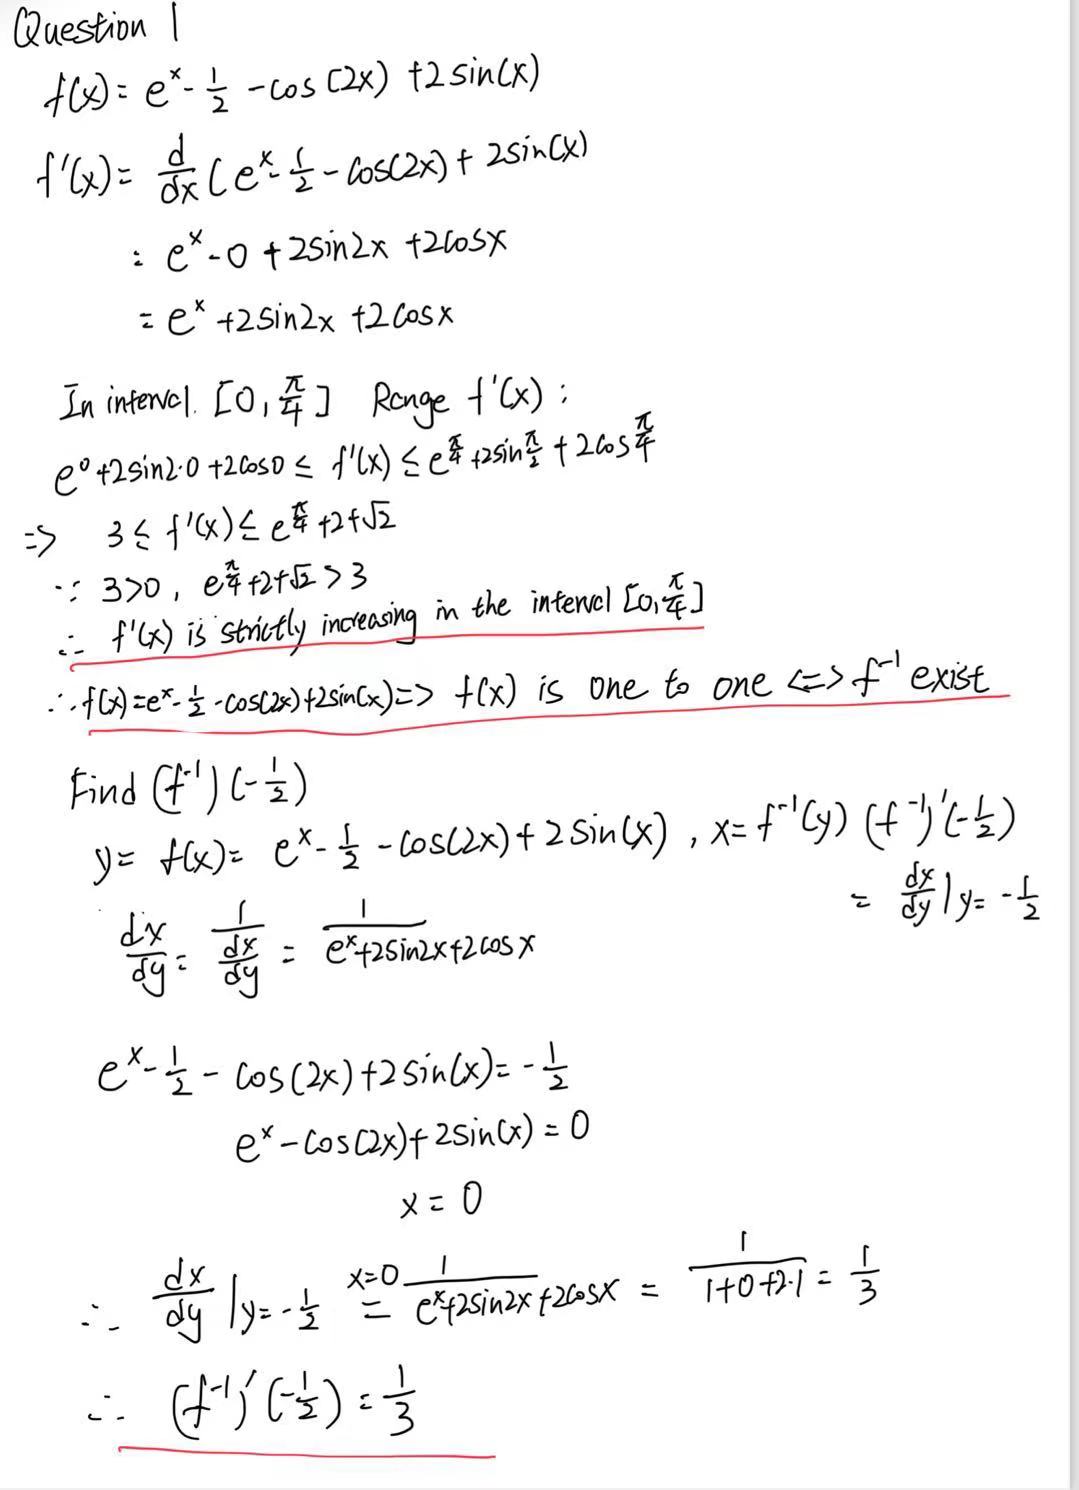 Question 1
f(x) = e^x - 1/2 - cos(2x) + 2sin(x)
f'(x) = d/dx (e^x - 1/2 - cos(2x) + 2sin(x)
= e^x - 0 + 2sin2x + 2cosx
= e^x + 2sin2x + 2cosx
In interval. [0, π/4] Range f'(x) :
e^0 + 2sin2·0 + 2cos0 ≤ f'(x) ≤ e^(π/4) + 2sin π/2 + 2cos π/4
=> 3 ≤ f'(x) ≤ e^(π/4) + 2 + √2
∵ 3>0, e^(π/4) + 2 + √2 > 3
∴ f'(x) is strictly increasing in the interval [0, π/4]
∴ f(x) = e^x - 1/2 - cos(2x) + 2sin(x) => f(x) is one to one <=> f^-1 exist
Find (f^-1)(-1/2)
y = f(x) = e^x - 1/2 - cos(2x) + 2sin(x), x = f^-1(y) (f^-1)'(-1/2)
= dx/dy |y = -1/2
dx/dy = 1/(dx/dy) = 1/(e^x + 2sin2x + 2cosx)
e^x - 1/2 - cos(2x) + 2sin(x) = -1/2
e^x - cos(2x) + 2sin(x) = 0
x = 0
∴ dx/dy |y = -1/2 x=0 = 1/(e^x + 2sin2x + 2cosx) = 1/(1+0+2·1) = 1/3
∴ (f^-1)'(-1/2) = 1/3